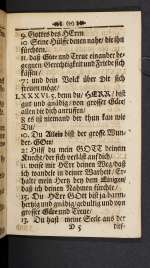 ( 57 )
9. Gottes des HErrn
10. Seine Hülffe denen nahe, die ihn
fürchten,
11. daß Güte und Treue einander be-
gegnen, Gerechtigkeit und Friede sich
küssen,
7. und dein Volk über Dir sich
freuen möge,
LXXXVI. 5. denn du, HERR, bist
gut und gnädig, von grosser Güte
allen die dich anruffen,
8. es ist dir keiner gleich, was thut wie
Du,
10. Du Allein bist der große Wun-
der-GOtt,
2. Hilff du mein GOTT deinem
Knechte, der sich verläßt auf dich,
11. weise mir HErr deinen Weg, daß
ich wandele in deiner Warheit, Er-
halte mein Hertz bey dem Einigen,
daß ich deinen Nahmen fürchte,
15. Du HErr GOtt bist ja barm-
hertzig und gnädig, gedultig und von
grosser Güte und Treue,
13. Du hast meine Seele aus der
D 5
tief-